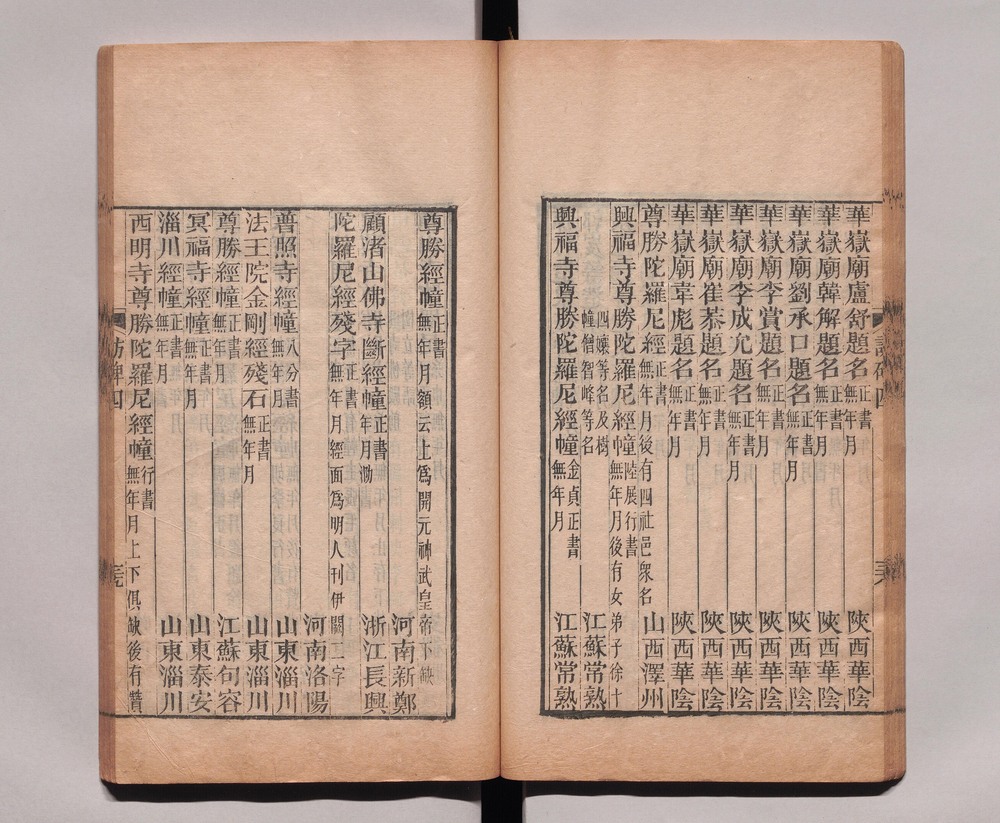 華嶽廟盧舒題名正書無年月 陝西華陰
華嶽廟韓解題名正書無年月 陝西華陰
華嶽廟劉承口題名正書無年月 陝西華陰
華嶽廟李賞題名正書無年月 陝西華陰
華嶽廟李成允題名正書無年月 陝西華陰
華嶽廟崔恭題名正書無年月 陝西華陰
華嶽廟韋彪題名正書無年月 陝西華陰
尊勝陀羅尼經正書無年月後有四社邑衆名 山西澤州
興福寺尊勝陀羅尼經幢陸展行書無年月後有女弟子徐十
四孃等名及樹幢僧智峰等名 江蘇常熟
興福寺尊勝陀羅尼經幢金貞正書無年月 江蘇常熟
尊勝經幢正書無年月額云上爲開元神武皇帝下缺 河南新鄭
顧渚山佛寺斷經幢正書無年月泐 浙江長興
陀羅尼經殘字正書無年月經面爲明人刊伊闕二字
河南洛陽
普照寺經幢八分書無年月 山東淄川
法王院金剛經殘石正書無年月 山東淄川
尊勝經幢正書無年月 江蘇句容
冥福寺經幢正書無年月 山東泰安
淄川經幢正書無年月 山東淄川
西明寺尊勝陀羅尼經幢行書無年月上下俱缺後有贊
訪碑四